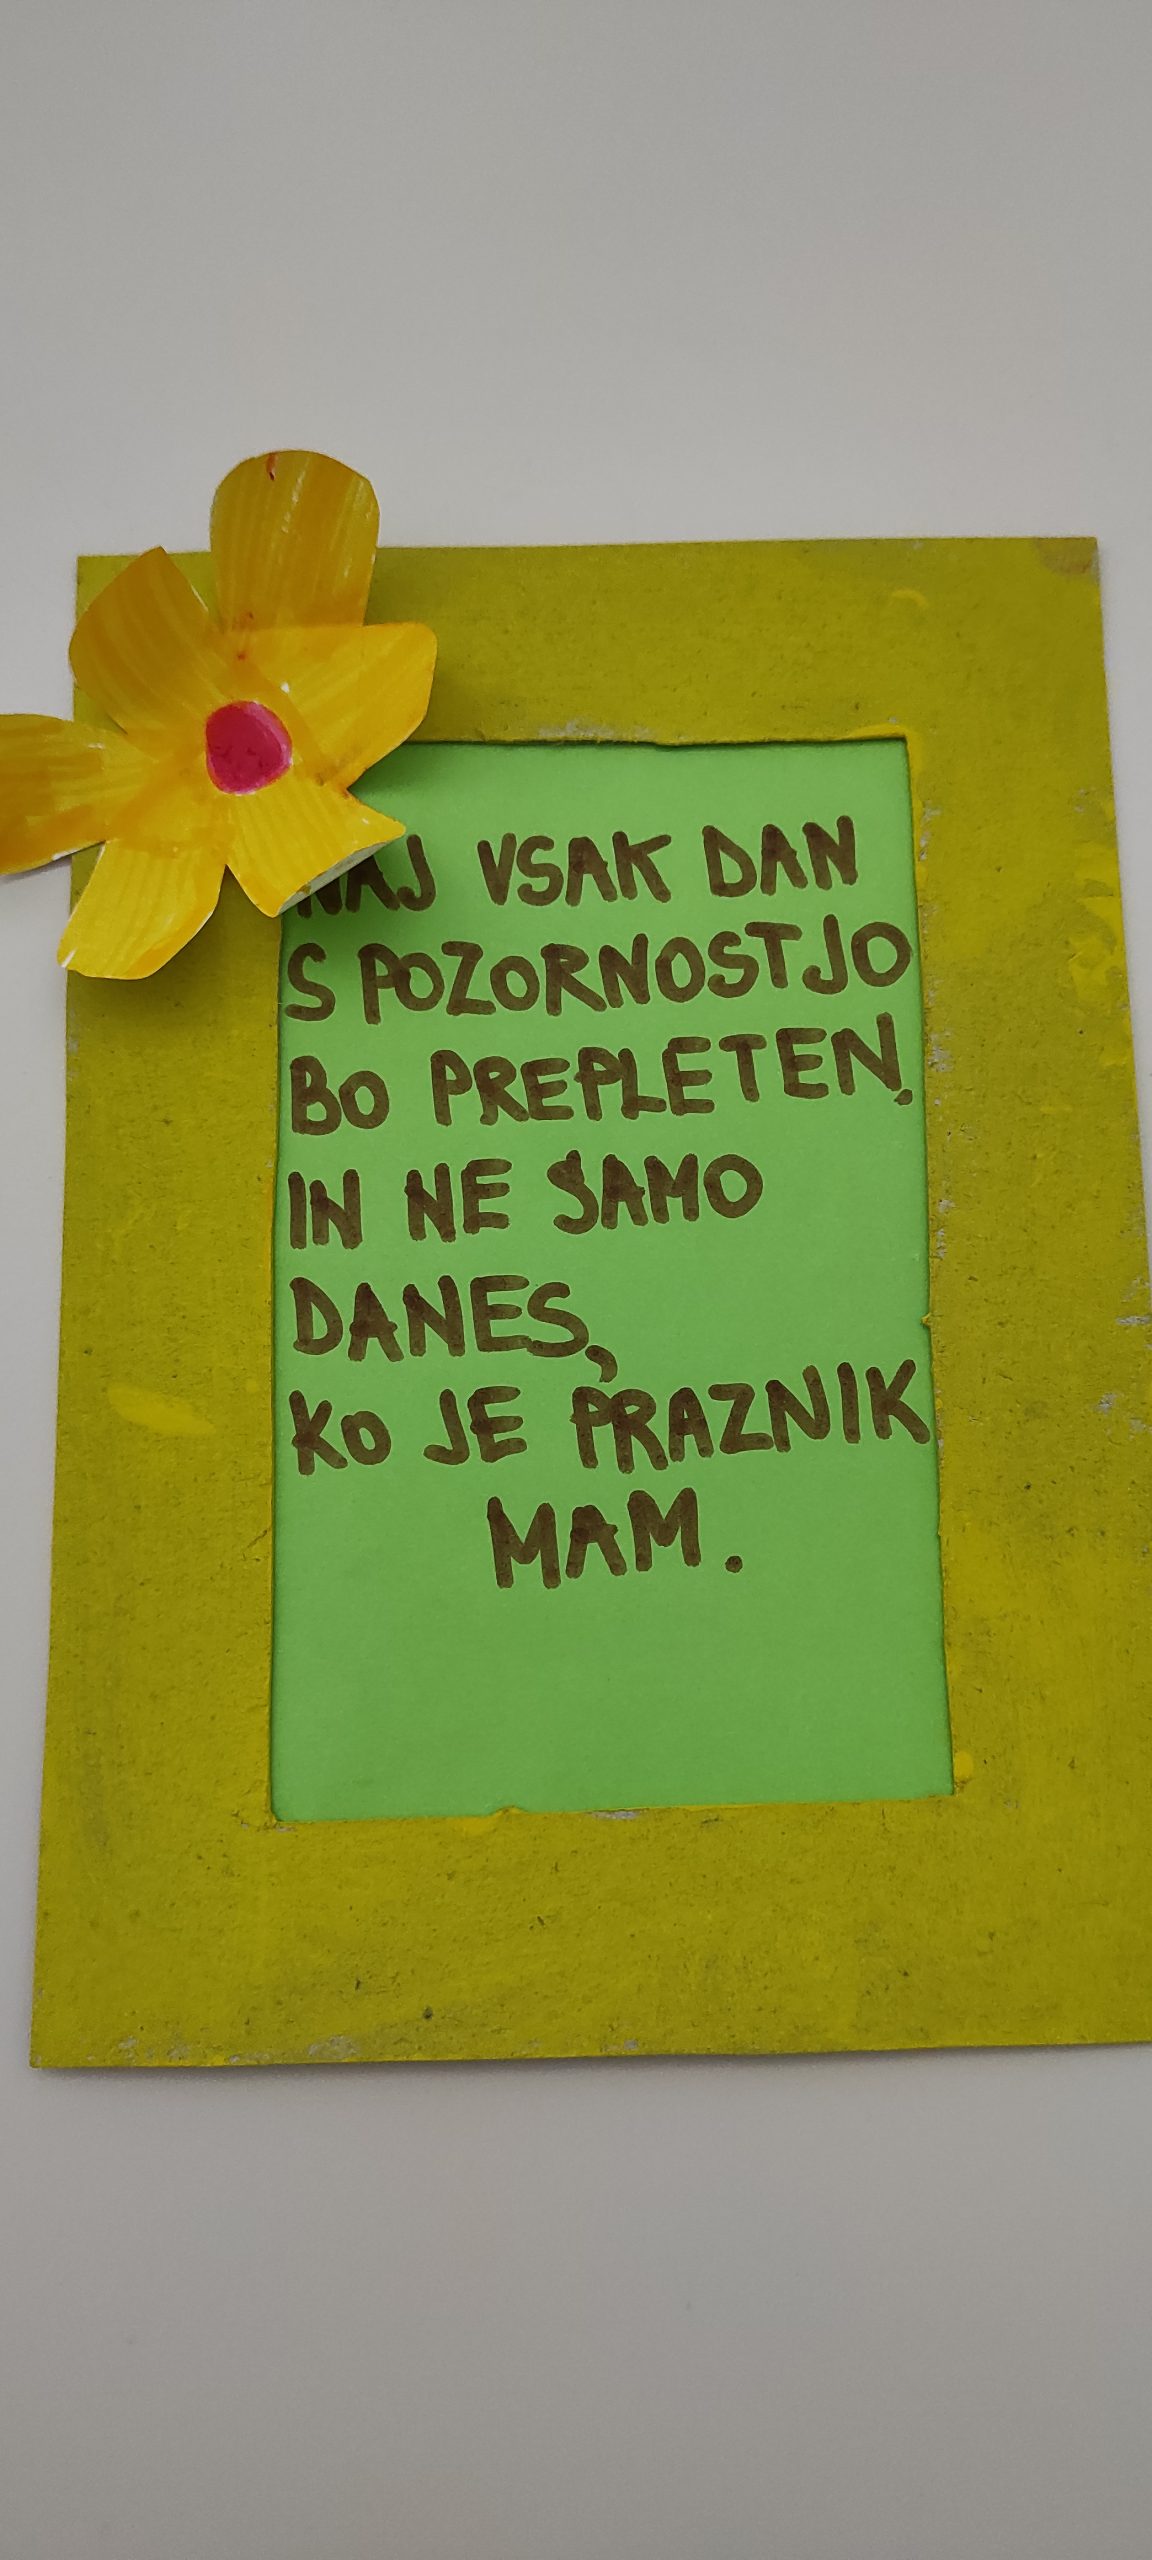 NAJ VSAK DAN
S POZORNOSTJO
BO PREPLETEN.
IN NE SAMO
DANES,
KO JE PRAZNIK
MAM.